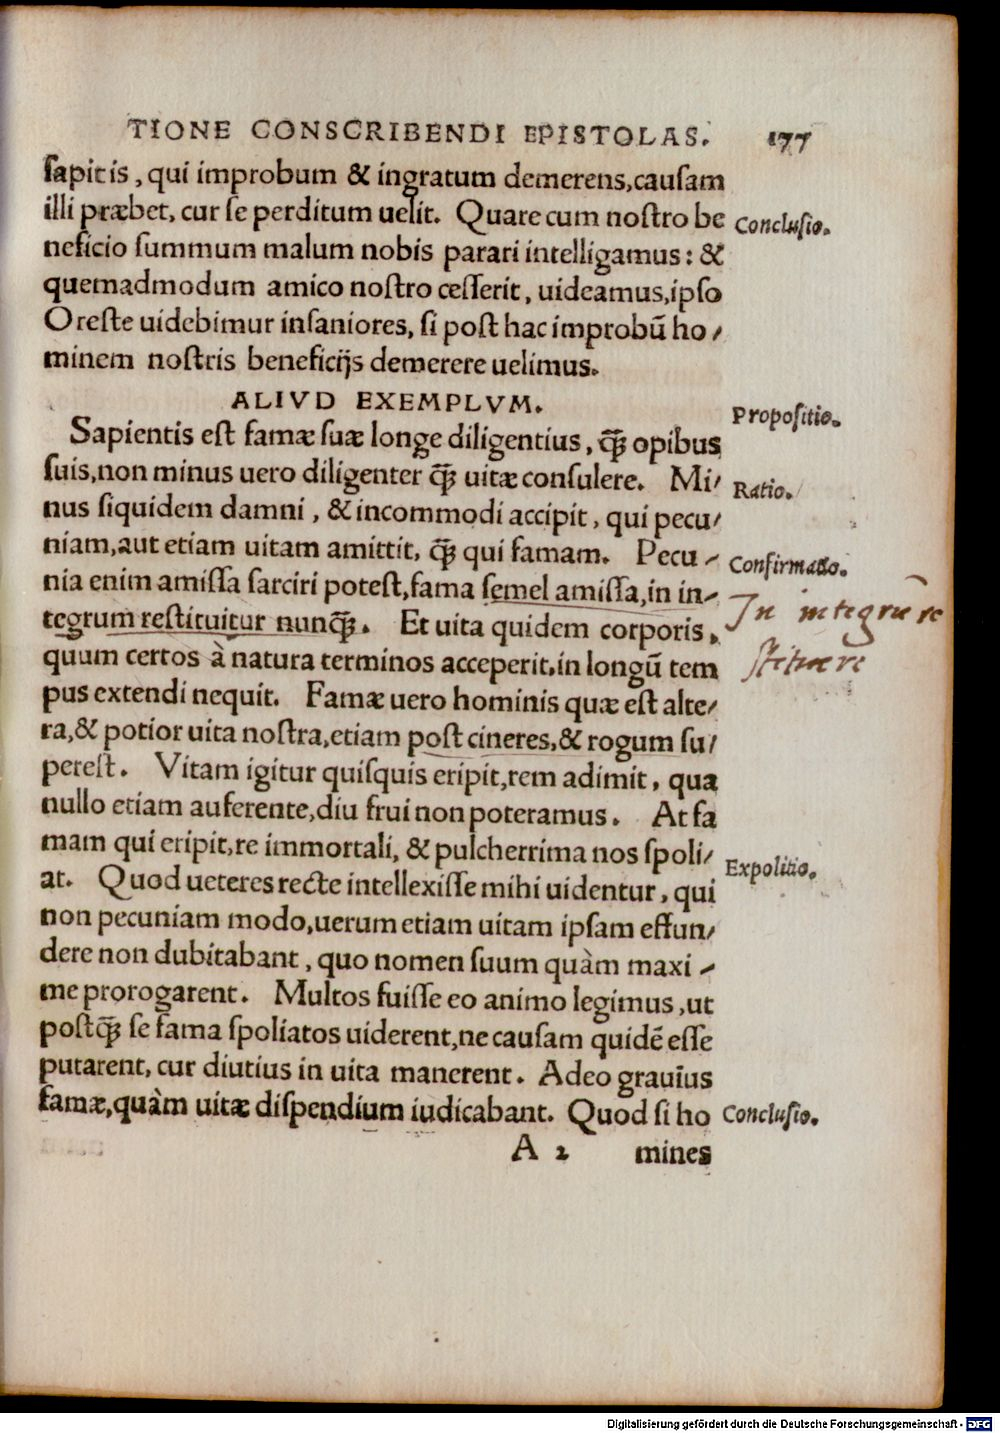 TIONE CONSCRIBENDI EPISTOLAS. 177
sapitis, qui improbum & ingratum demerens, causam
illi præbet, cur se perditum uelit. Quare cum nostro be
Conclusio.
neficio summum malum nobis parari intelligamus: &
quemadmodum amico nostro cesserit, uideamus, ipso
Oreste uidebimur insaniores, si post hac improbū ho/
minem nostris beneficijs demerere uelimus.
ALIVD EXEMPLVM.
Propositio.
Sapientis est famæ suæ longe diligentius, q̄ꝫ opibus
suis, non minus uero diligenter q̄ꝫ uitæ consulere. Mi/
Ratio.
nus siquidem damni, & incommodi accipit, qui pecu/
niam, aut etiam uitam amittit, q̄ꝫ qui famam. Pecu/
Confirmatio.
nia enim amissa sarciri potest, fama semel amissa, in in/
In integrū re
tegrum restituitur nunq̄ꝫ. Et uita quidem corporis,
stituere
quum certos à natura terminos acceperit, in longū tem
pus extendi nequit. Famæ uero hominis quæ est alte/
ra, & potior uita nostra, etiam post cineres, & rogum su/
perest. Vitam igitur quisquis eripit, rem adimit, qua
nullo etiam auferente, diu frui non poteramus. At fa
mam qui eripit, re immortali, & pulcherrima nos spoli/
Expolitio.
at. Quod ueteres recte intellexisse mihi uidentur, qui
non pecuniam modo, uerum etiam uitam ipsam effun/
dere non dubitabant, quo nomen suum quàm maxi/
me prorogarent. Multos fuisse eo animo legimus, ut
postq̄ꝫ se fama spoliatos uiderent, ne causam quidē esse
putarent, cur diutius in uita manerent. Adeo grauius
famæ, quàm uitæ dispendium iudicabant. Quod si ho
Conclusio.
A 2 mines
Digitalisierung gefördert durch die Deutsche Forschungsgemeinschaft - DFG